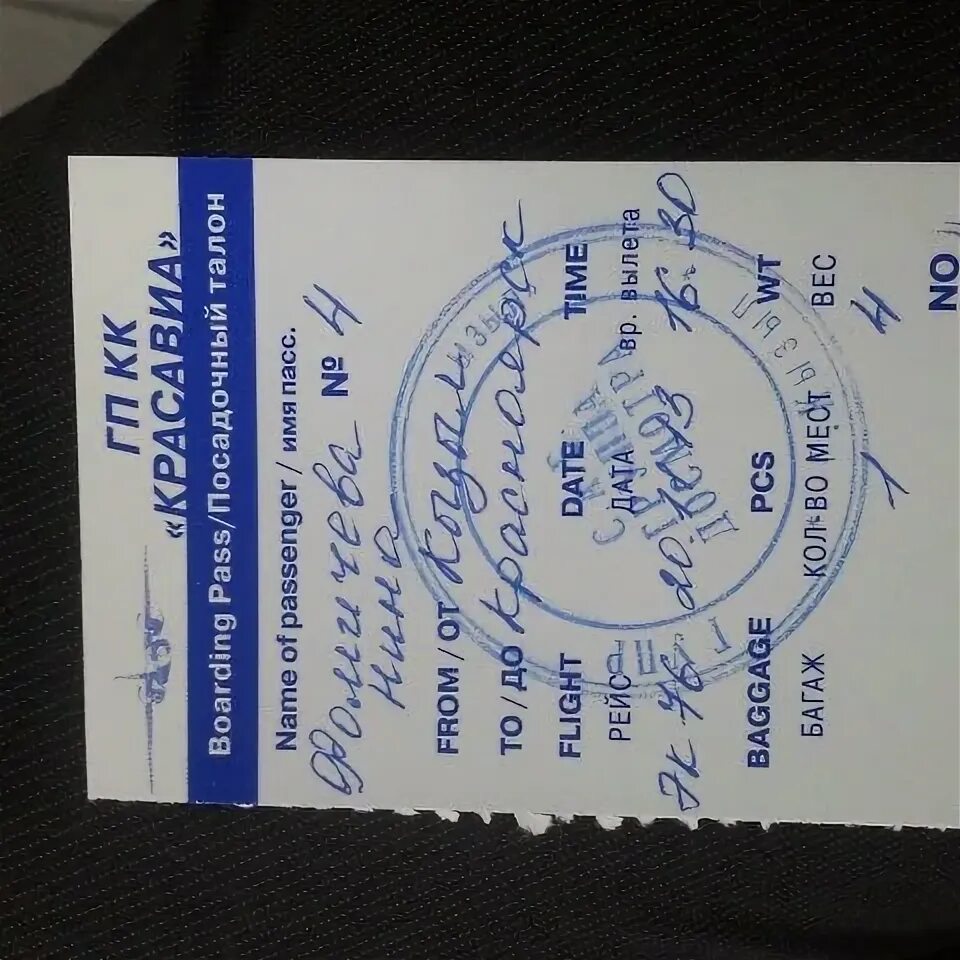 ГП КК
«КРАСАВИА»
Boarding Pass/Посадочный талон
Name of passenger / имя пасс.
Фомичева № 4
Нина
FROM / ОТ Кызыл
TO / ДО Красноярск
FLIGHT DATE TIME
РЕЙС ДАТА вр. вылета
16-30
BAGGAGE PCS WT
БАГАЖ КОЛ-ВО МЕСТ ВЕС
1 4
NO
КЫЗЫЛ
ДОСМОТР